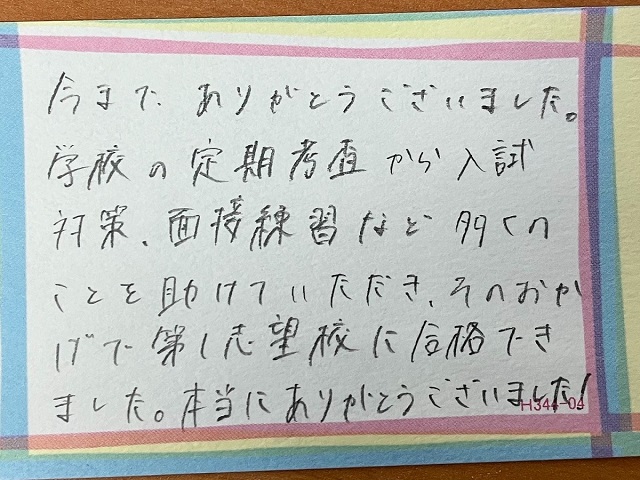 今まで ありがとうございました。
学校の定期考査から入試
対策、面接練習など多くの
ことを助けていただき、そのおか
げで第1志望校に合格でき
ました。本当にありがとうございました!
H344-04